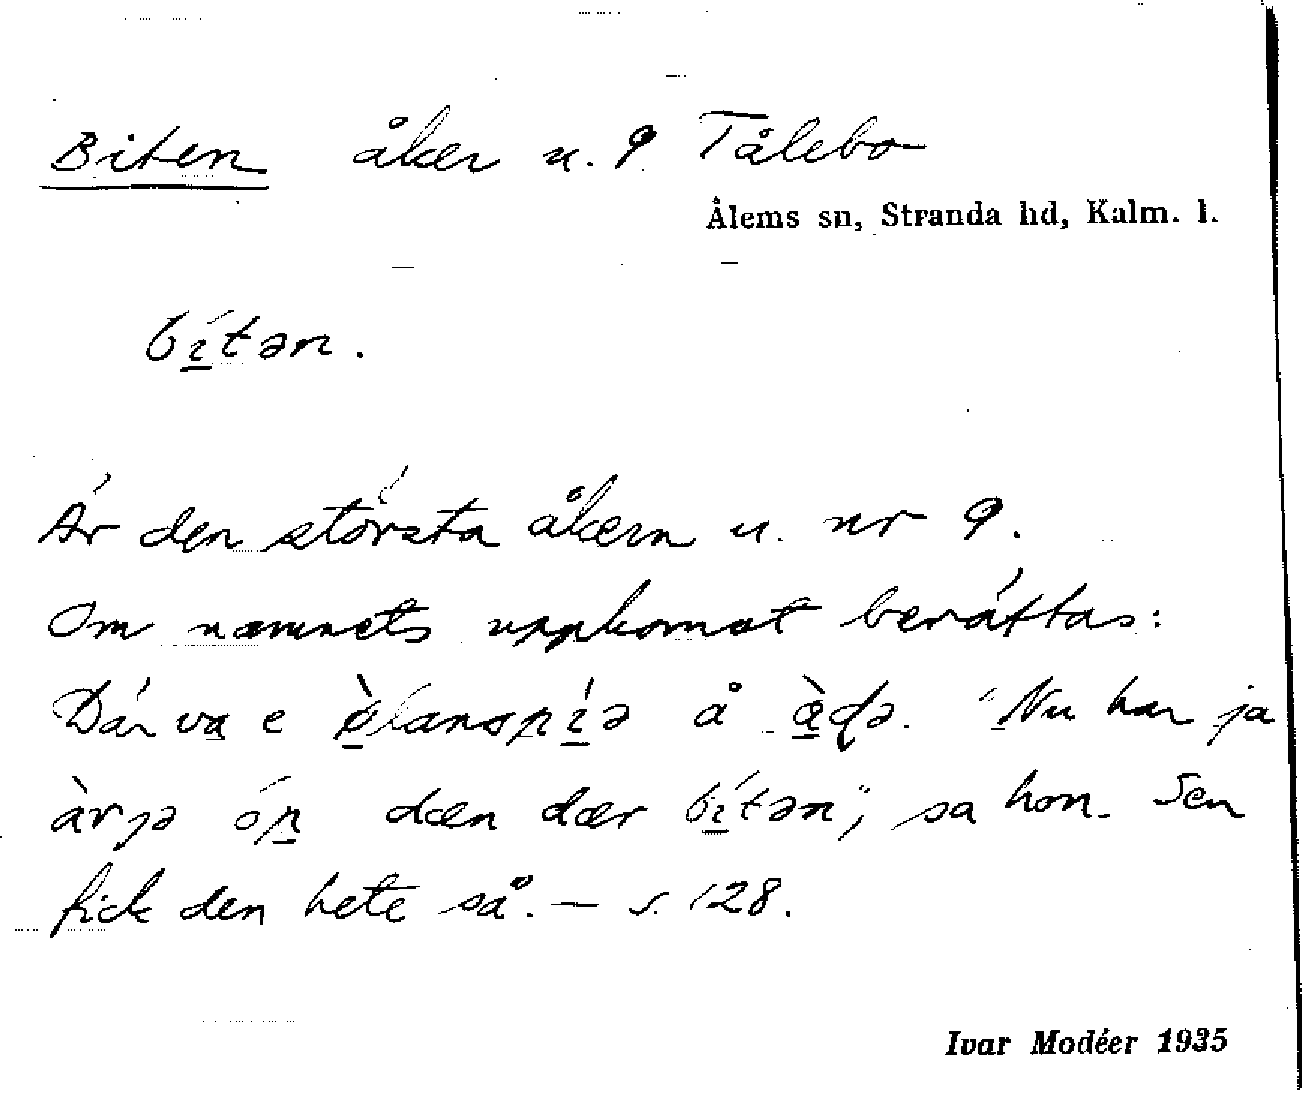 Biten åker u. 9 Tålebo
Ålems sn, Stranda hd, Kalm. l.
bí̲tən.
Är den största åkern u. nr 9.
Om namnets uppkomst berättas:
Där va e å "Nu har ja
dæn dær bí̲tən", sa hon. Sen
fick den hete så. — s. 128.
Ivar Modéer 1935